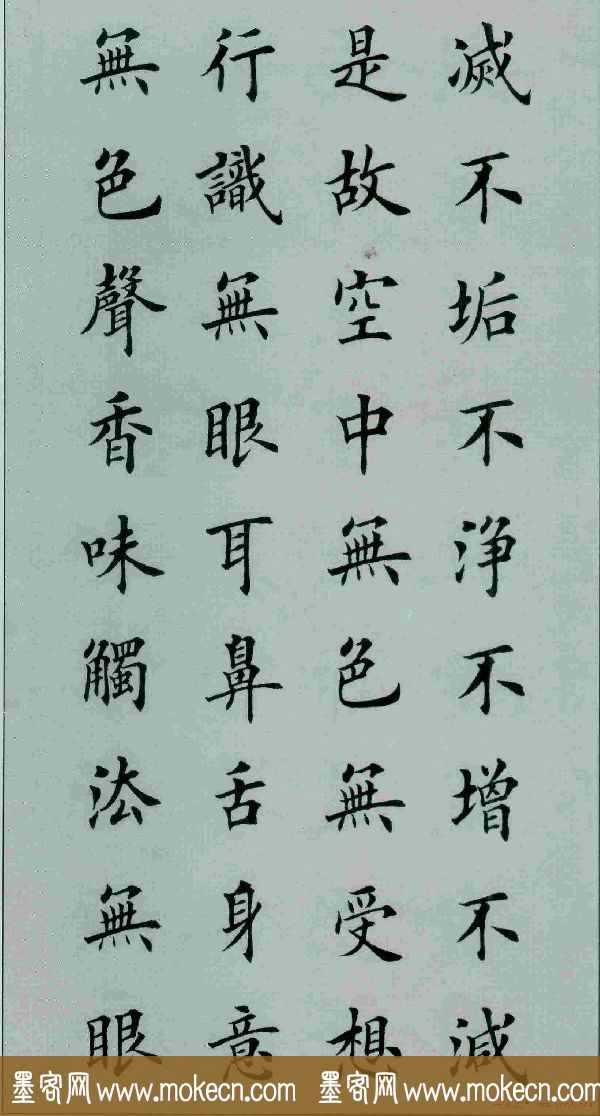 滅不垢不淨不增不減
是故空中無色無受想
行識無眼耳鼻舌身意
無色聲香味觸法無眼
墨客网 www.mokecn.com 墨客网 www.mokecn.com